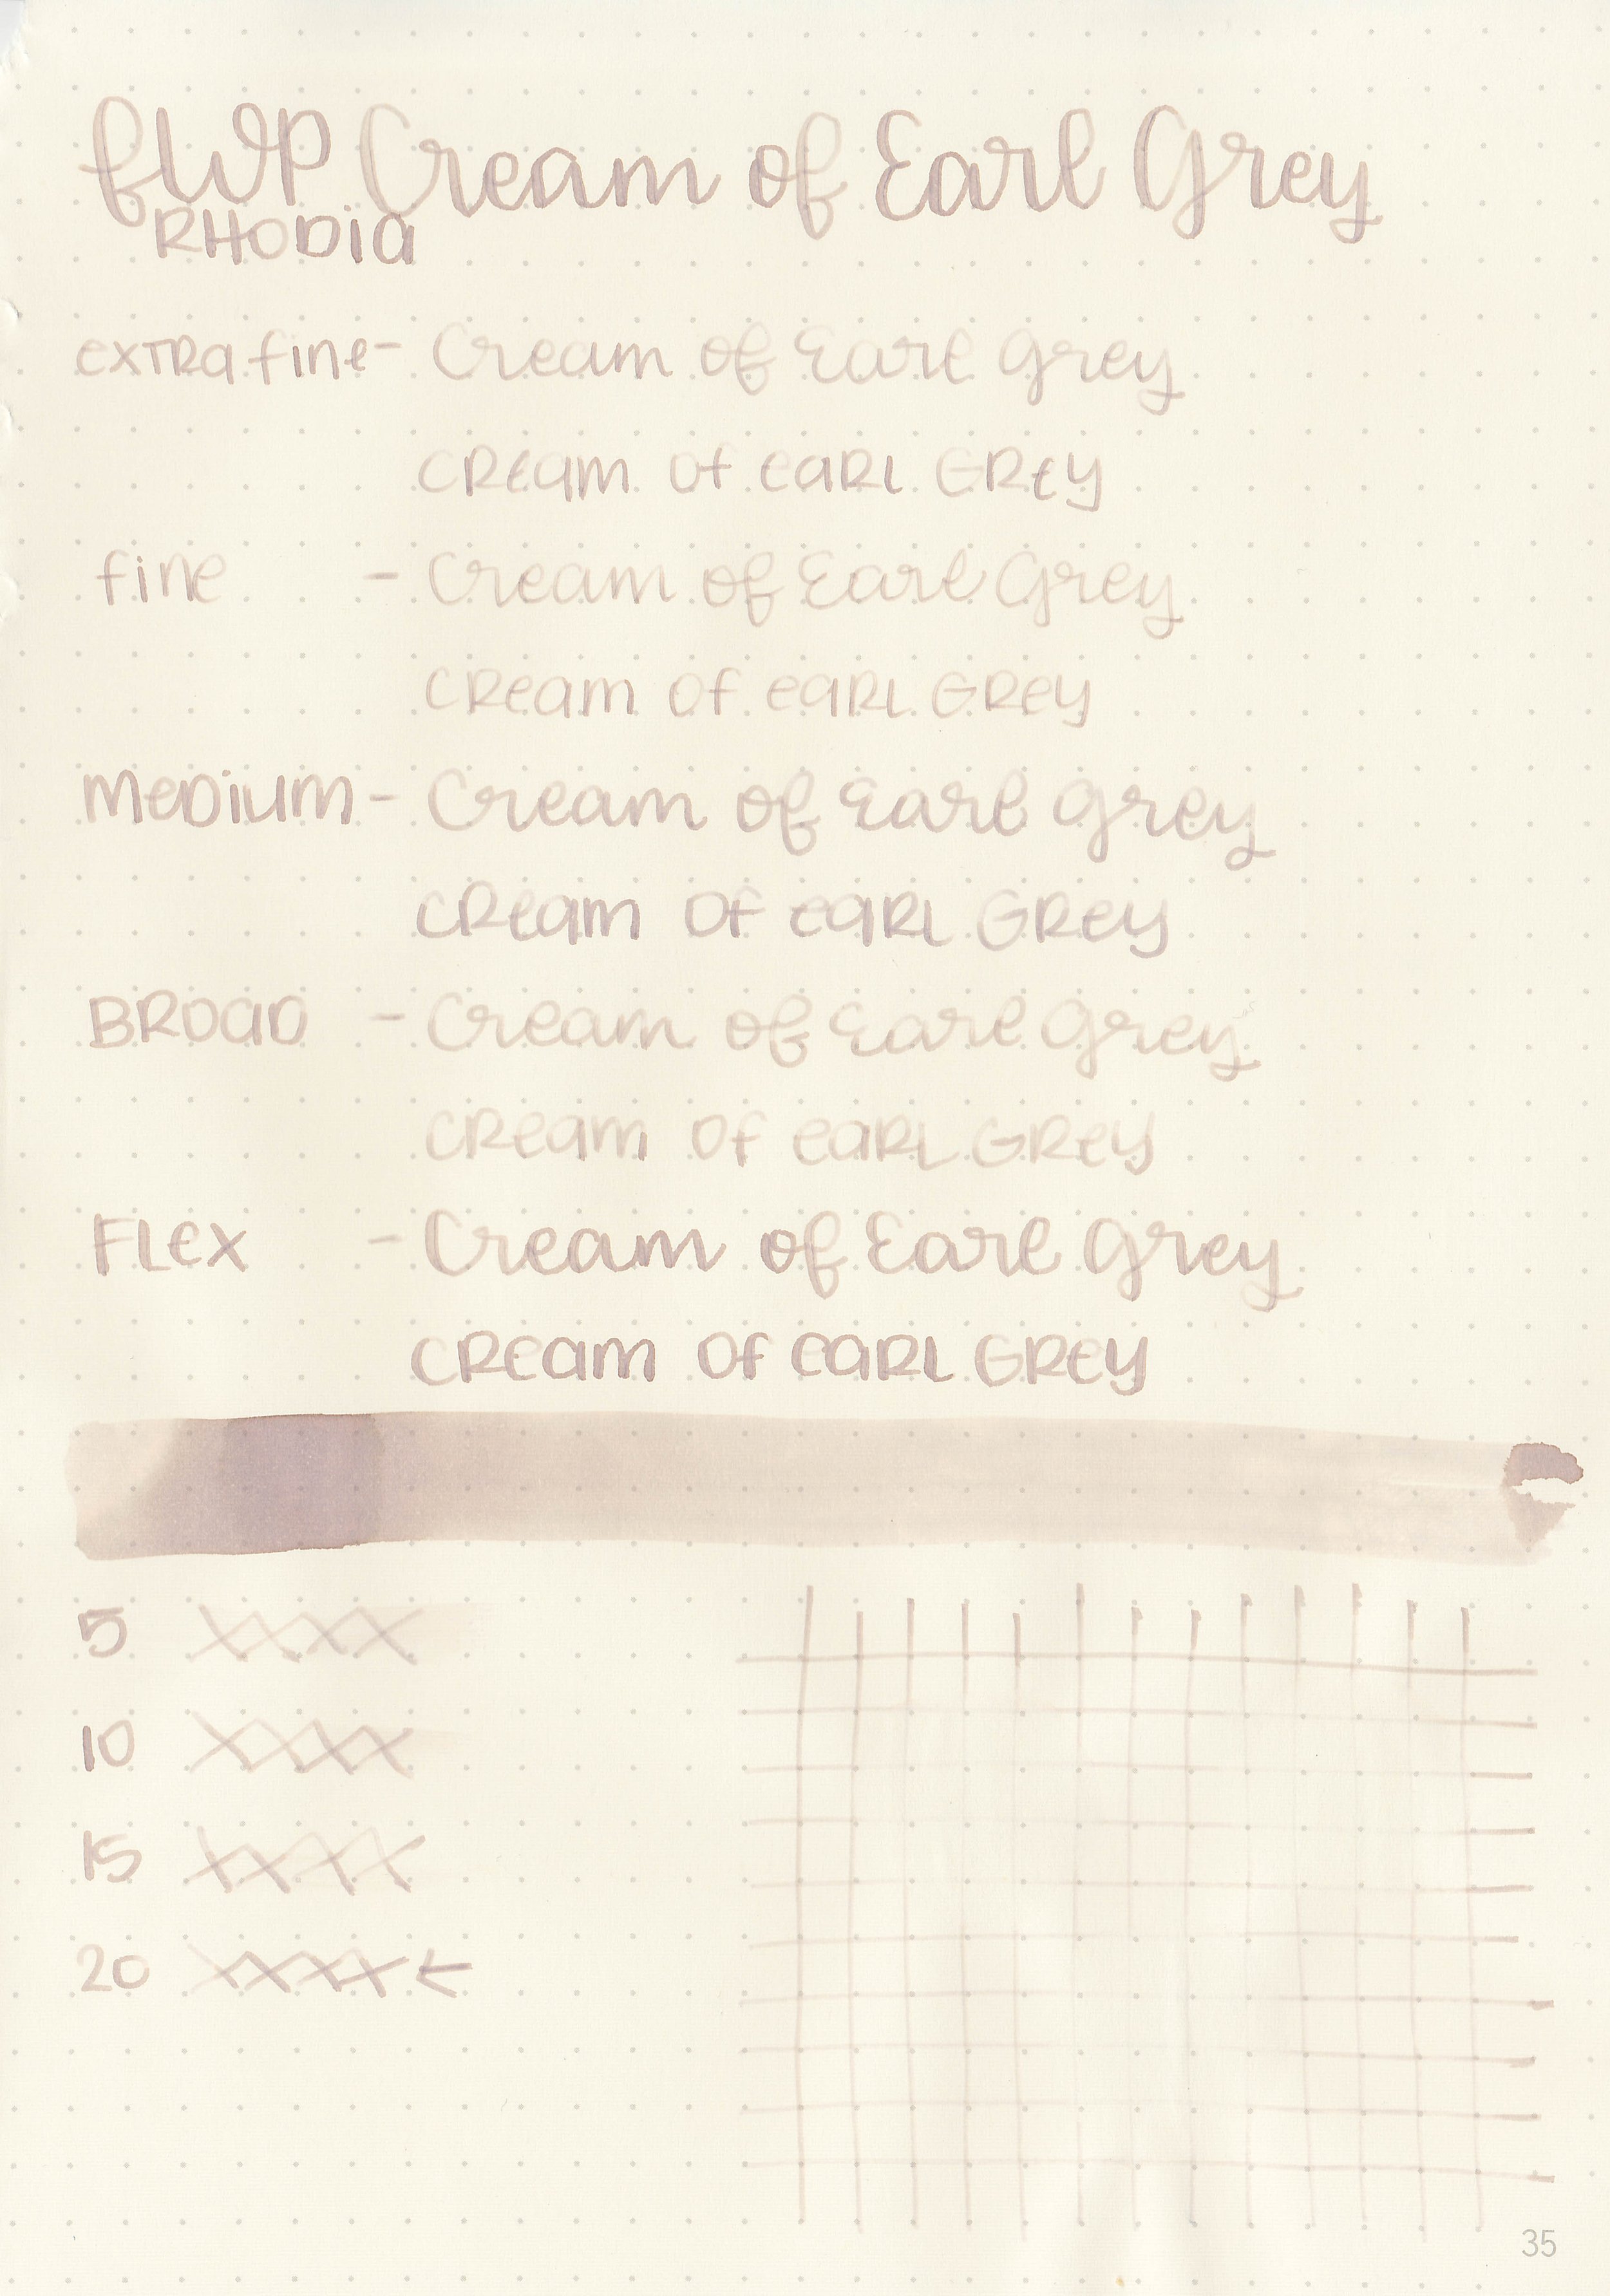 fWP Cream of Earl Grey
RHODIA
extra fine - Cream of Earl Grey
CReam Of eaRL GRey
fine - Cream of Earl Grey
CReam Of eaRL GRey
MeDium - Cream of Earl Grey
CReam Of eaRL GRey
BROaD - Cream of Earl Grey
CReam Of eaRL GRey
FLex - Cream of Earl Grey
CReam Of eaRL GRey
5 XXXX
10 XXXX
15 XXXX
20 XXXX ←
35